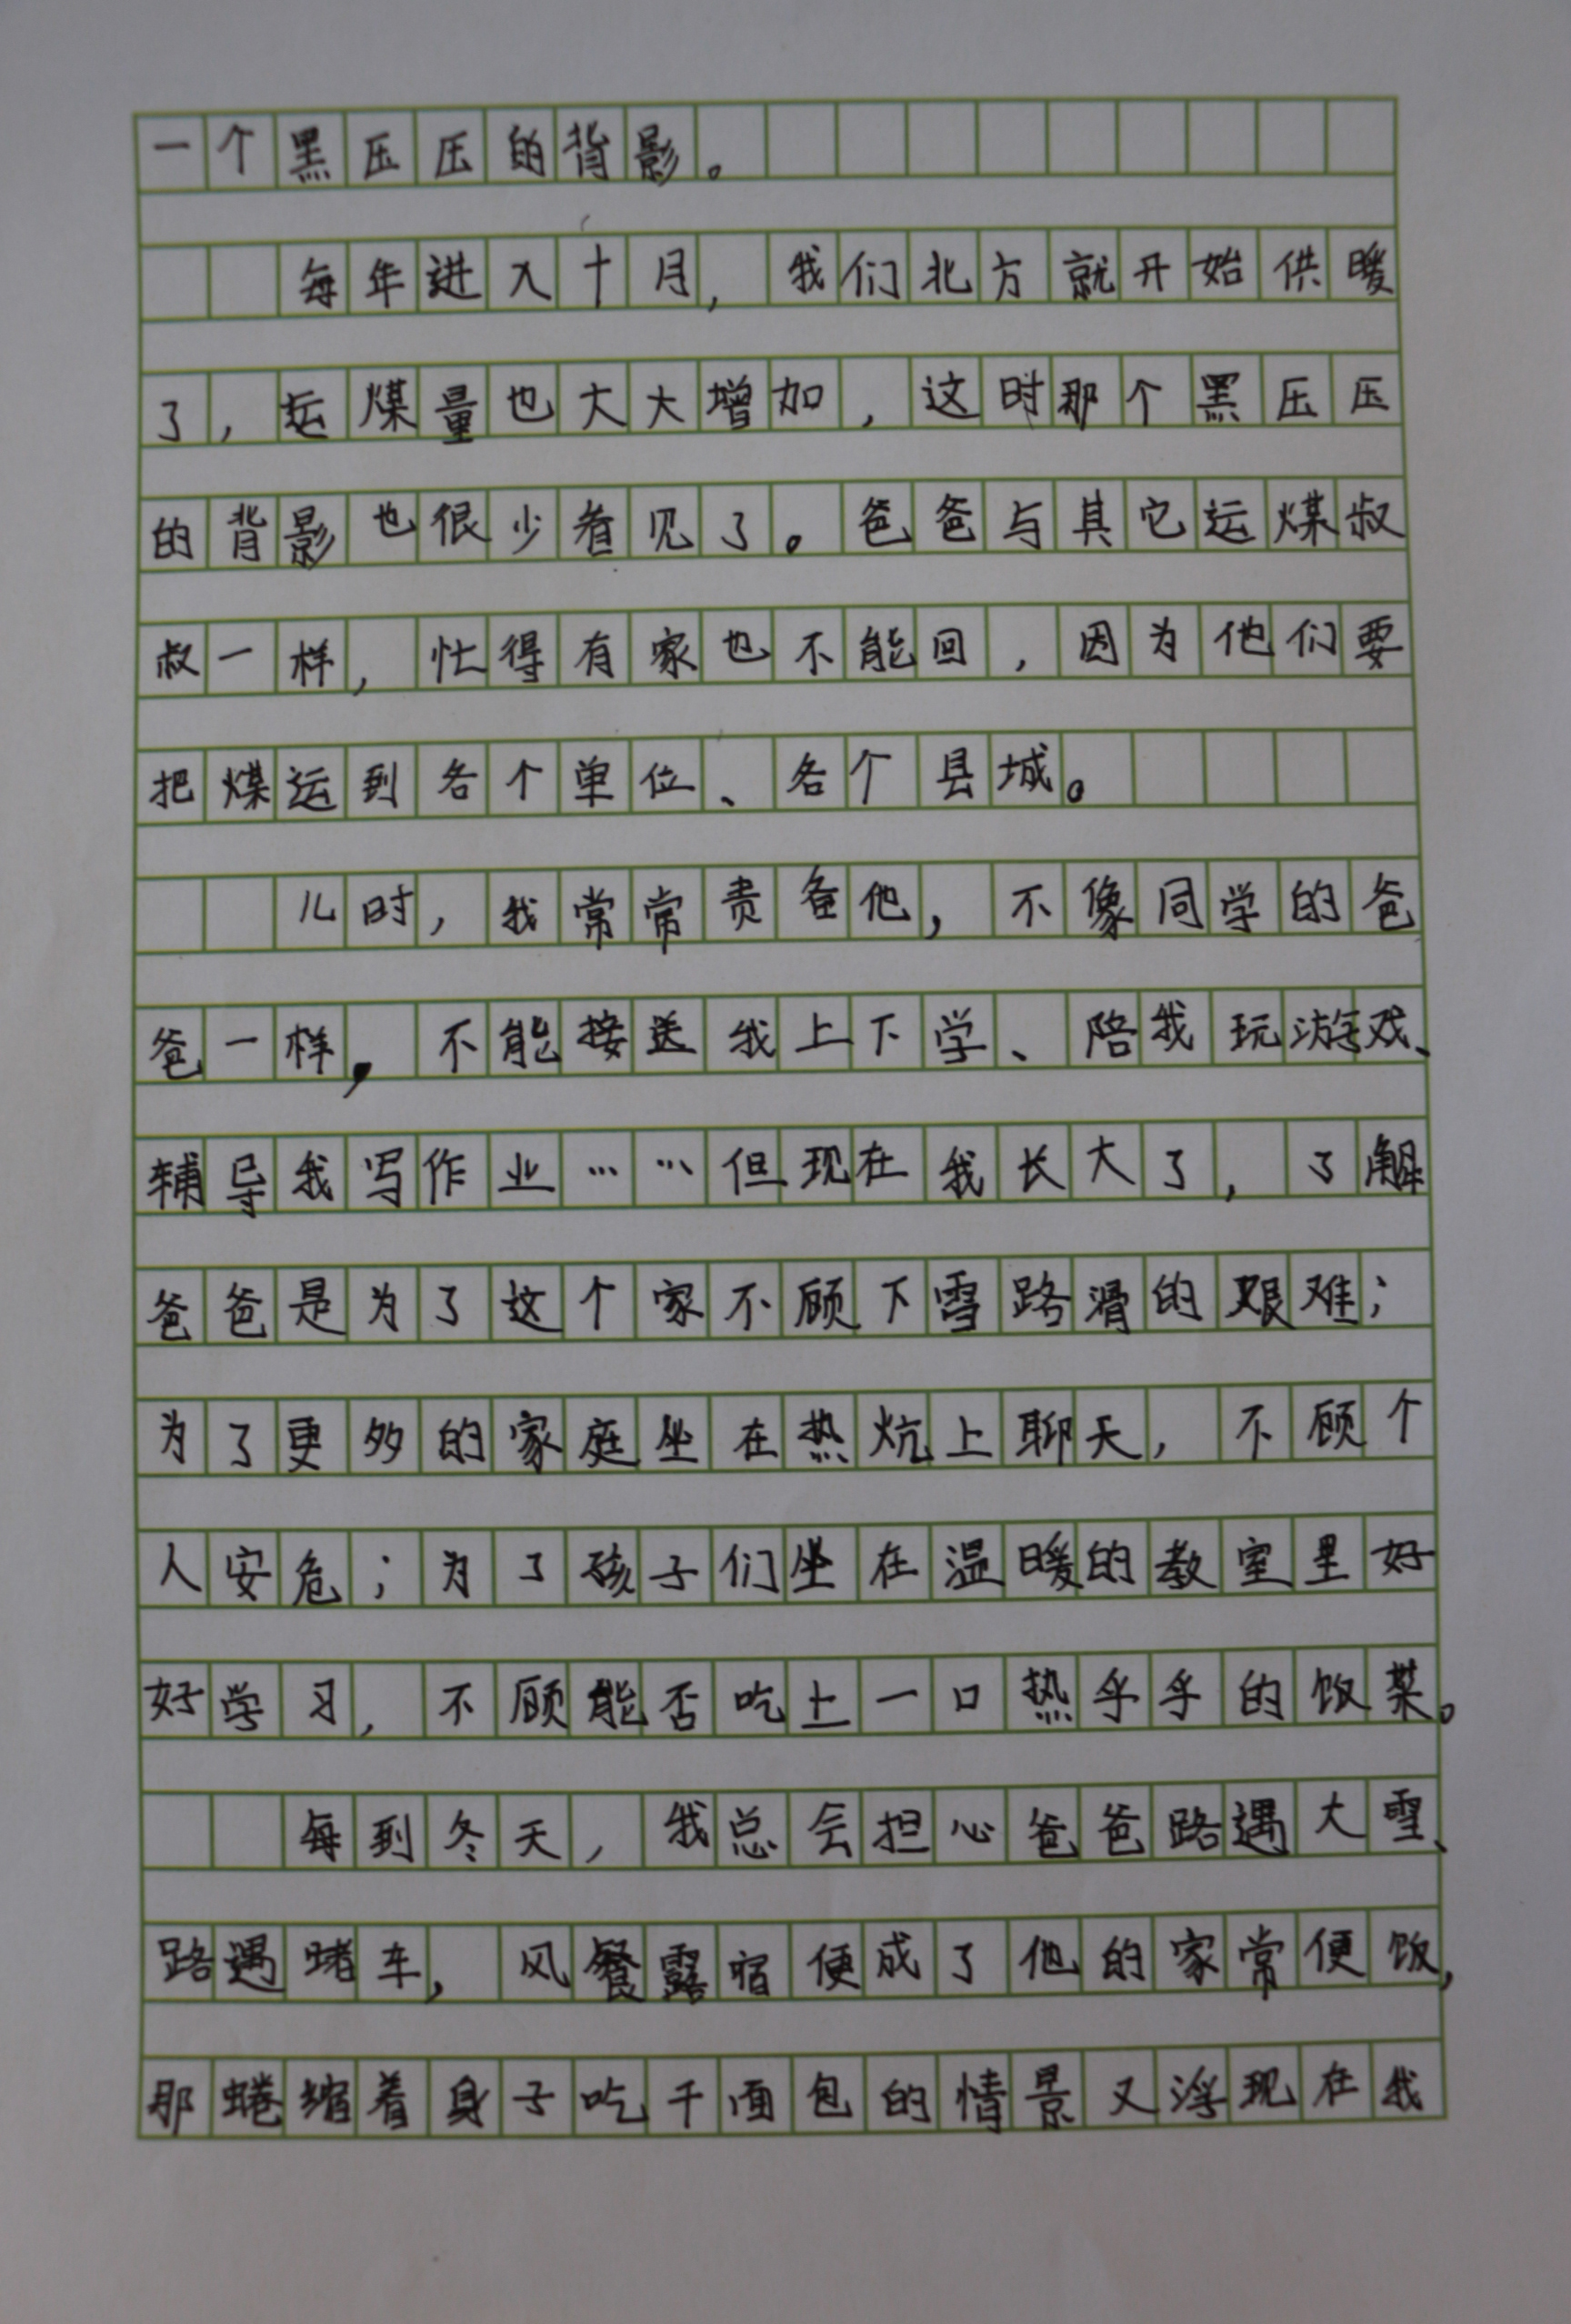 一个黑压压的背影。
每年进入十月，我们北方就开始供暖
了，运煤量也大大增加，这时那个黑压压
的背影也很少看见了。爸爸与其它运煤叔
叔一样，忙得有家也不能回，因为他们要
把煤运到各个单位、各个县城。
儿时，我常常责备他，不像同学的爸
爸一样，不能接送我上下学、陪我玩游戏、
辅导我写作业……但现在我长大了，了解
爸爸是为了这个家不顾下雪路滑的艰难；
为了更多的家庭坐在热炕上聊天，不顾个
人安危；为了孩子们坐在温暖的教室里好
好学习，不顾能否吃上一口热乎乎的饭菜。
每到冬天，我总会担心爸爸路遇大雪、
路遇堵车，风餐露宿便成了他的家常便饭，
那蜷缩着身子吃干面包的情景又浮现在我